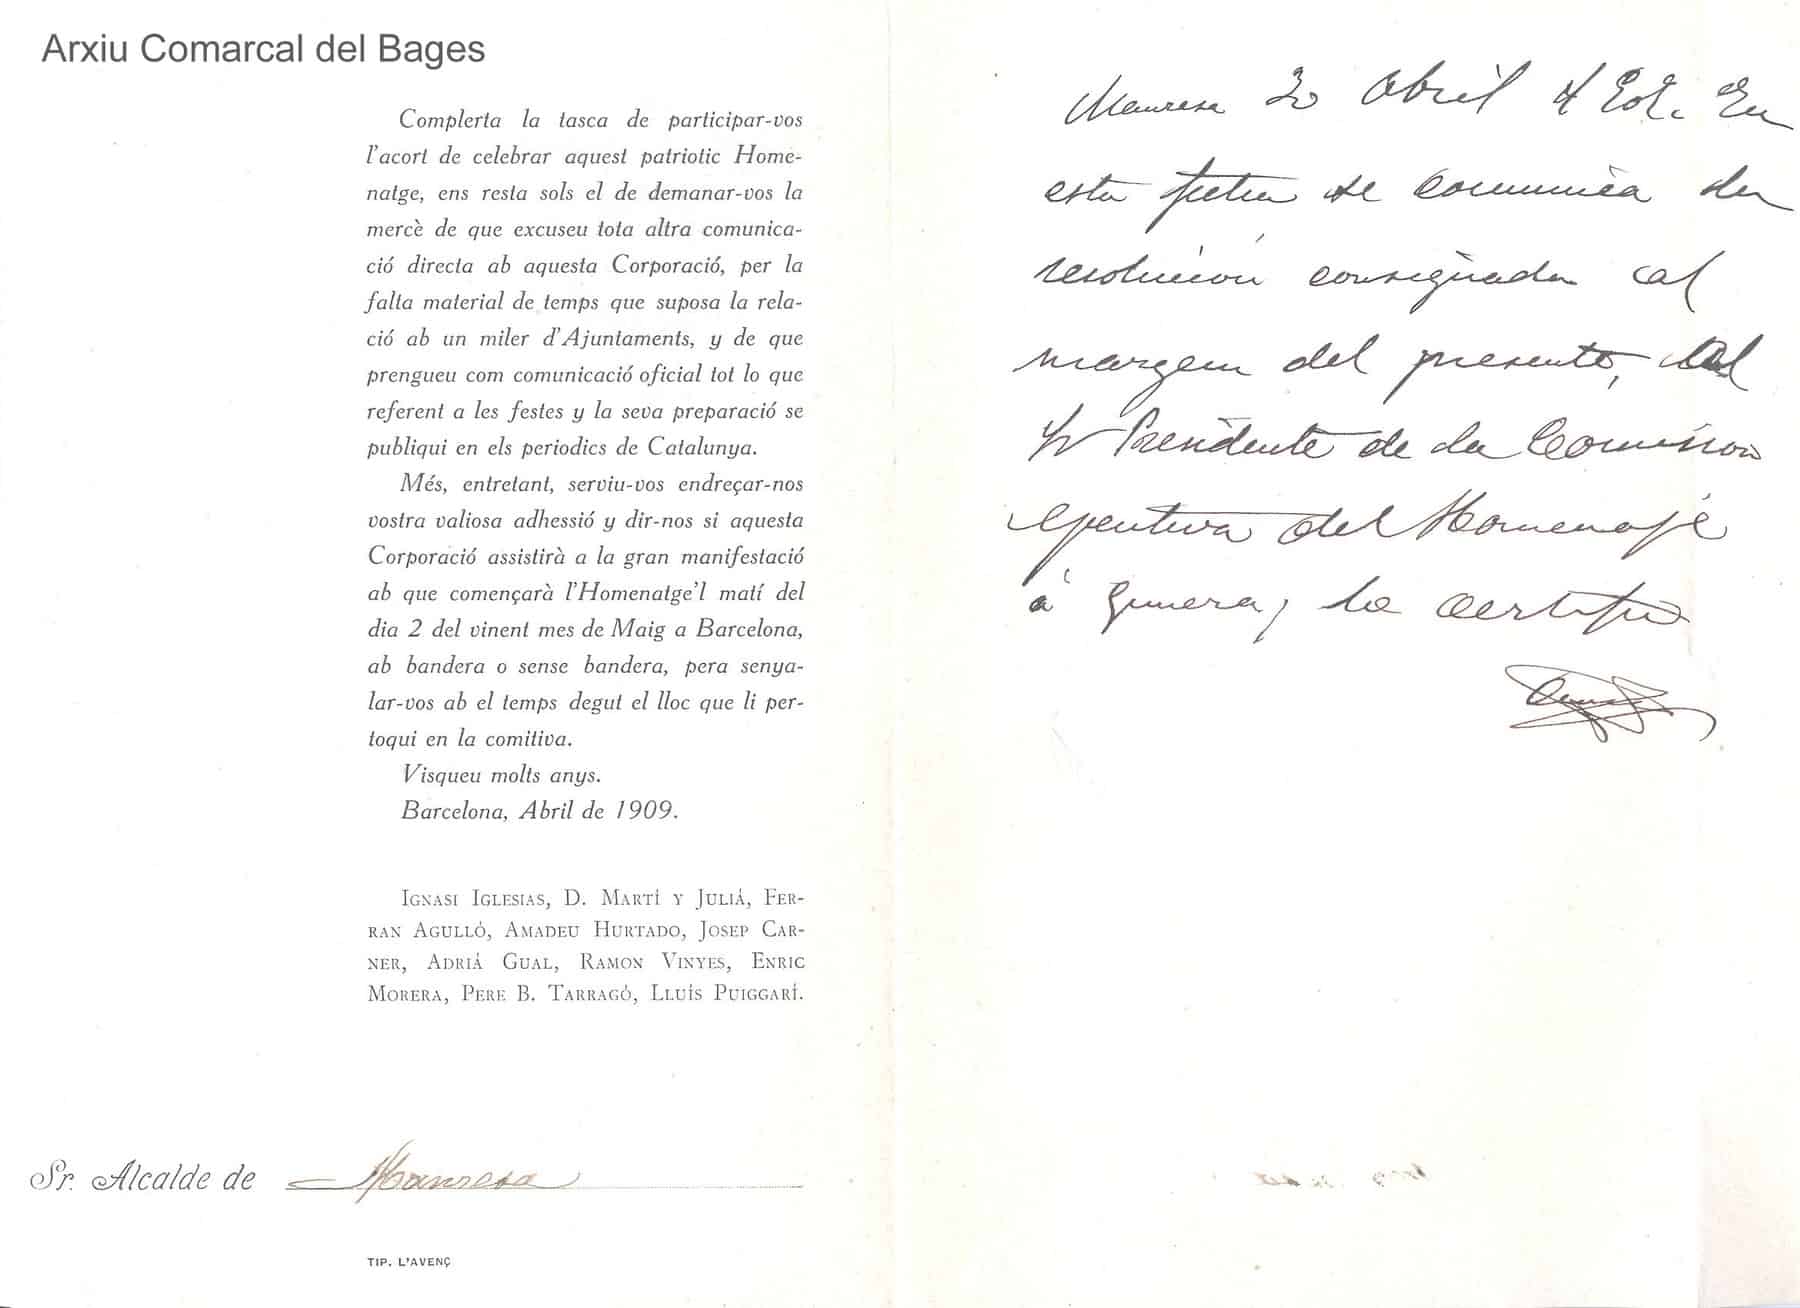 Arxiu Comarcal del Bages
Complerta la tasca de participar-vos
l'acort de celebrar aquest patriotic Home-
natge, ens resta sols el de demanar-vos la
mercè de que excuseu tota altra comunica-
ció directa ab aquesta Corporació, per la
falta material de temps que suposa la rela-
ció ab un miler d'Ajuntaments, y de que
prengueu com comunicació oficial tot lo que
referent a les festes y la seva preparació se
publiqui en els periodics de Catalunya.
Més, entretant, serviu-vos endreçar-nos
vostra valiosa adhessió y dir-nos si aquesta
Corporació assistirà a la gran manifestació
ab que començarà l'Homenatge'l matí del
dia 2 del vinent mes de Maig a Barcelona,
ab bandera o sense bandera, pera senya-
lar-vos ab el temps degut el lloc que li per-
toqui en la comitiva.
Visqueu molts anys.
Barcelona, Abril de 1909.
Ignasi Iglesias, D. Martí y Juliá, Fer-
ran Agulló, Amadeu Hurtado, Josep Car-
ner, Adriá Gual, Ramon Vinyes, Enric
Morera, Pere B. Tarragó, Lluís Puiggarí.
Sr. Alcalde de Manresa
TIP. L'AVENÇ
Manresa Abril En
esta fecha se comunica la
resolución consignada al
margen del presente, al
Sr Presidente de la Comision
ejecutiva del Homenaje
á Guimera, lo certifico